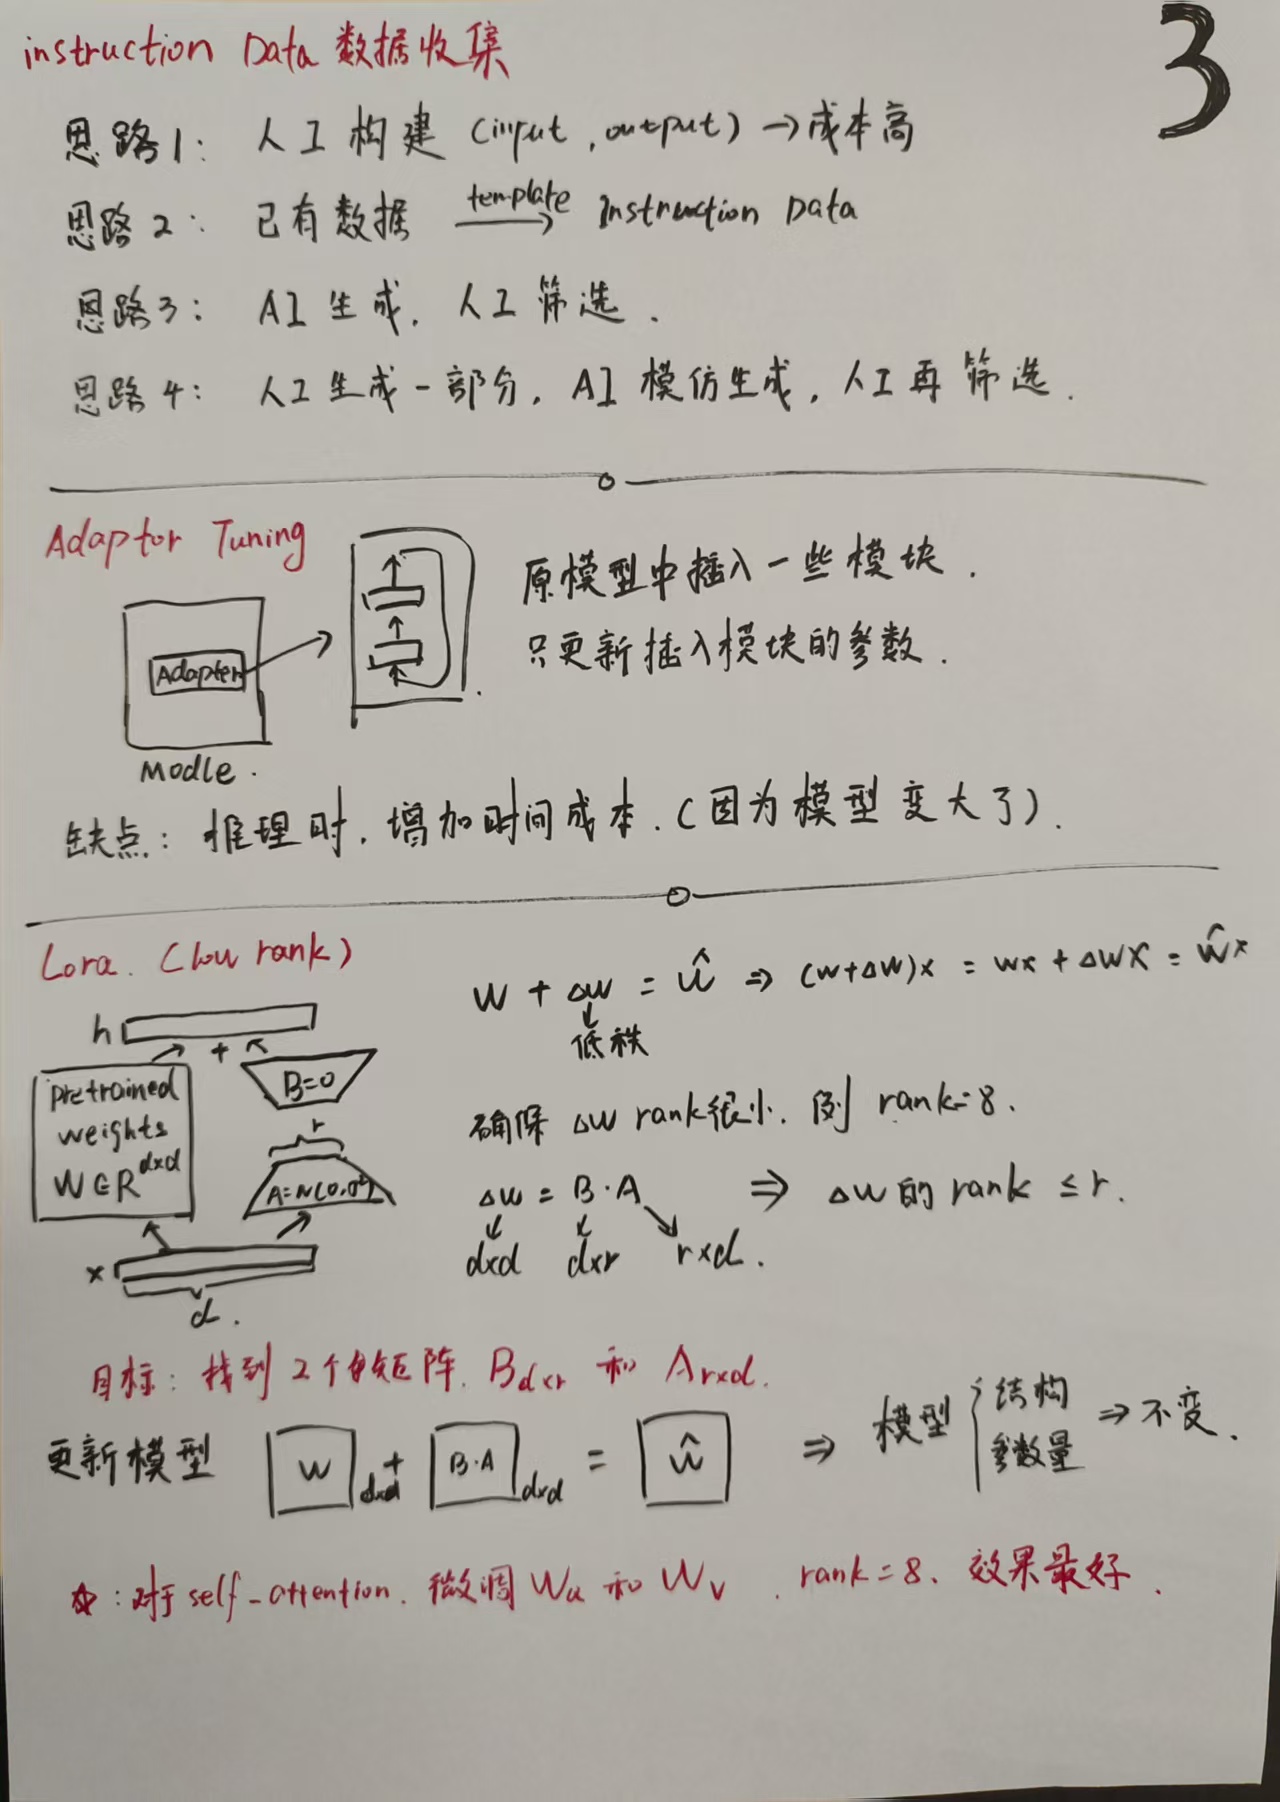 3
instruction Data 数据收集
思路1: 人工构建 (input, output) → 成本高
思路2: 已有数据 template→ Instruction Data
思路3: AI 生成, 人工筛选.
思路4: 人工生成一部分, AI 模仿生成, 人工再筛选.
Adaptor Tuning
原模型中插入一些模块.
只更新插入模块的参数.
Adapter
Modle.
缺点: 推理时, 增加时间成本. (因为模型变大了).
Lora. (low rank)
W + ΔW = Ŵ ⇒ (W+ΔW)x = Wx + ΔWX = Ŵx
低秩
h
+
B=0
pretrained
weights
W∈R^{d×d}
r
A=N(0,σ²)
x
d.
确保 ΔW rank很小. 例 rank=8.
ΔW = B·A ⇒ ΔW的 rank ≤ r.
d×d d×r r×d.
目标: 找到2个矩阵. B_{d×r} 和 A_{r×d}.
更新模型 W d×d + B·A d×d = Ŵ ⇒ 模型 { 结构 参数量 ⇒ 不变.
☆: 对于 self-attention. 微调 W 和 W_v . rank=8. 效果最好.